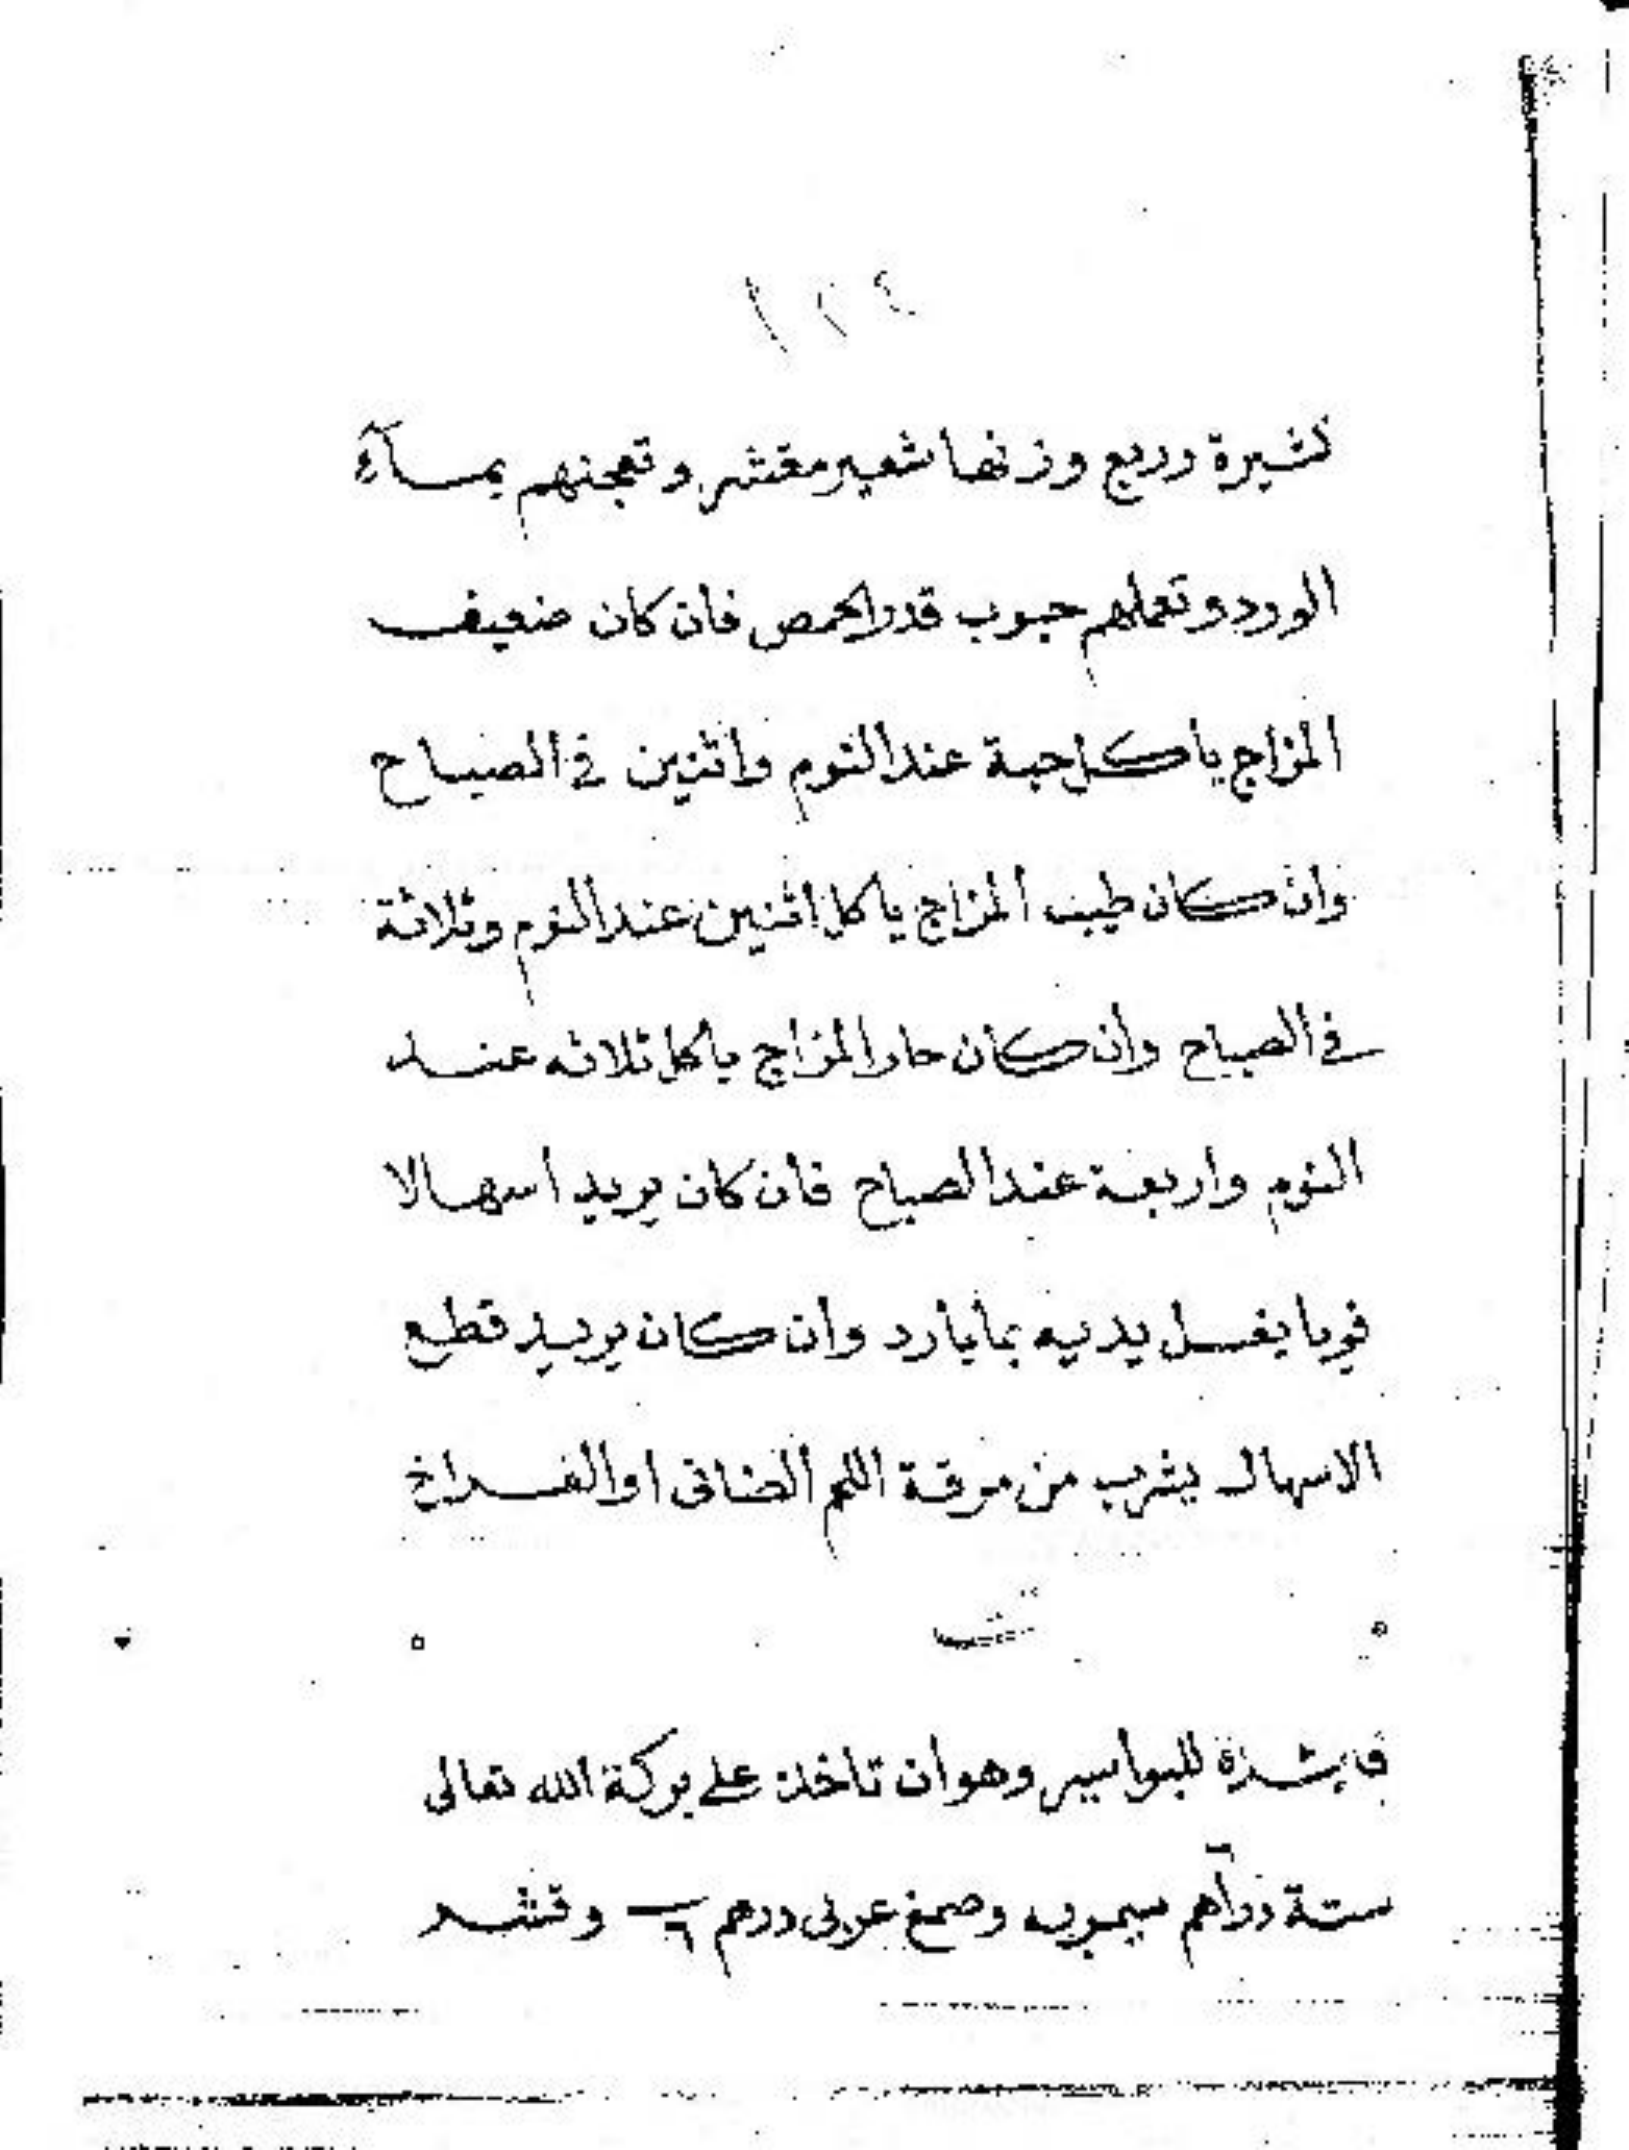 كثيرة وربع وزنها شعير مقشر وتعجنهم بمآء
الورد وتعملهم حبوب قدر الحمص فان كان ضعيف
المزاج ياكل حبة عند النوم واثنين في الصباح
وان كان طيب المزاج ياكل اثنين عند النوم وثلاثة
في الصباح وان كان حار المزاج ياكل ثلاثه عند
النوم واربعة عند الصباح فان كان يريد اسهالا
قويا يغسل يديه بما بارد وان كان يريد قطع
الاسهال يشرب من مرقة اللحم الضانى او الفراخ
للبواسير وهو ان تاخذ على بركة الله تعالى
ستة دراهم وصمغ عربى درهم ٦ وقشر